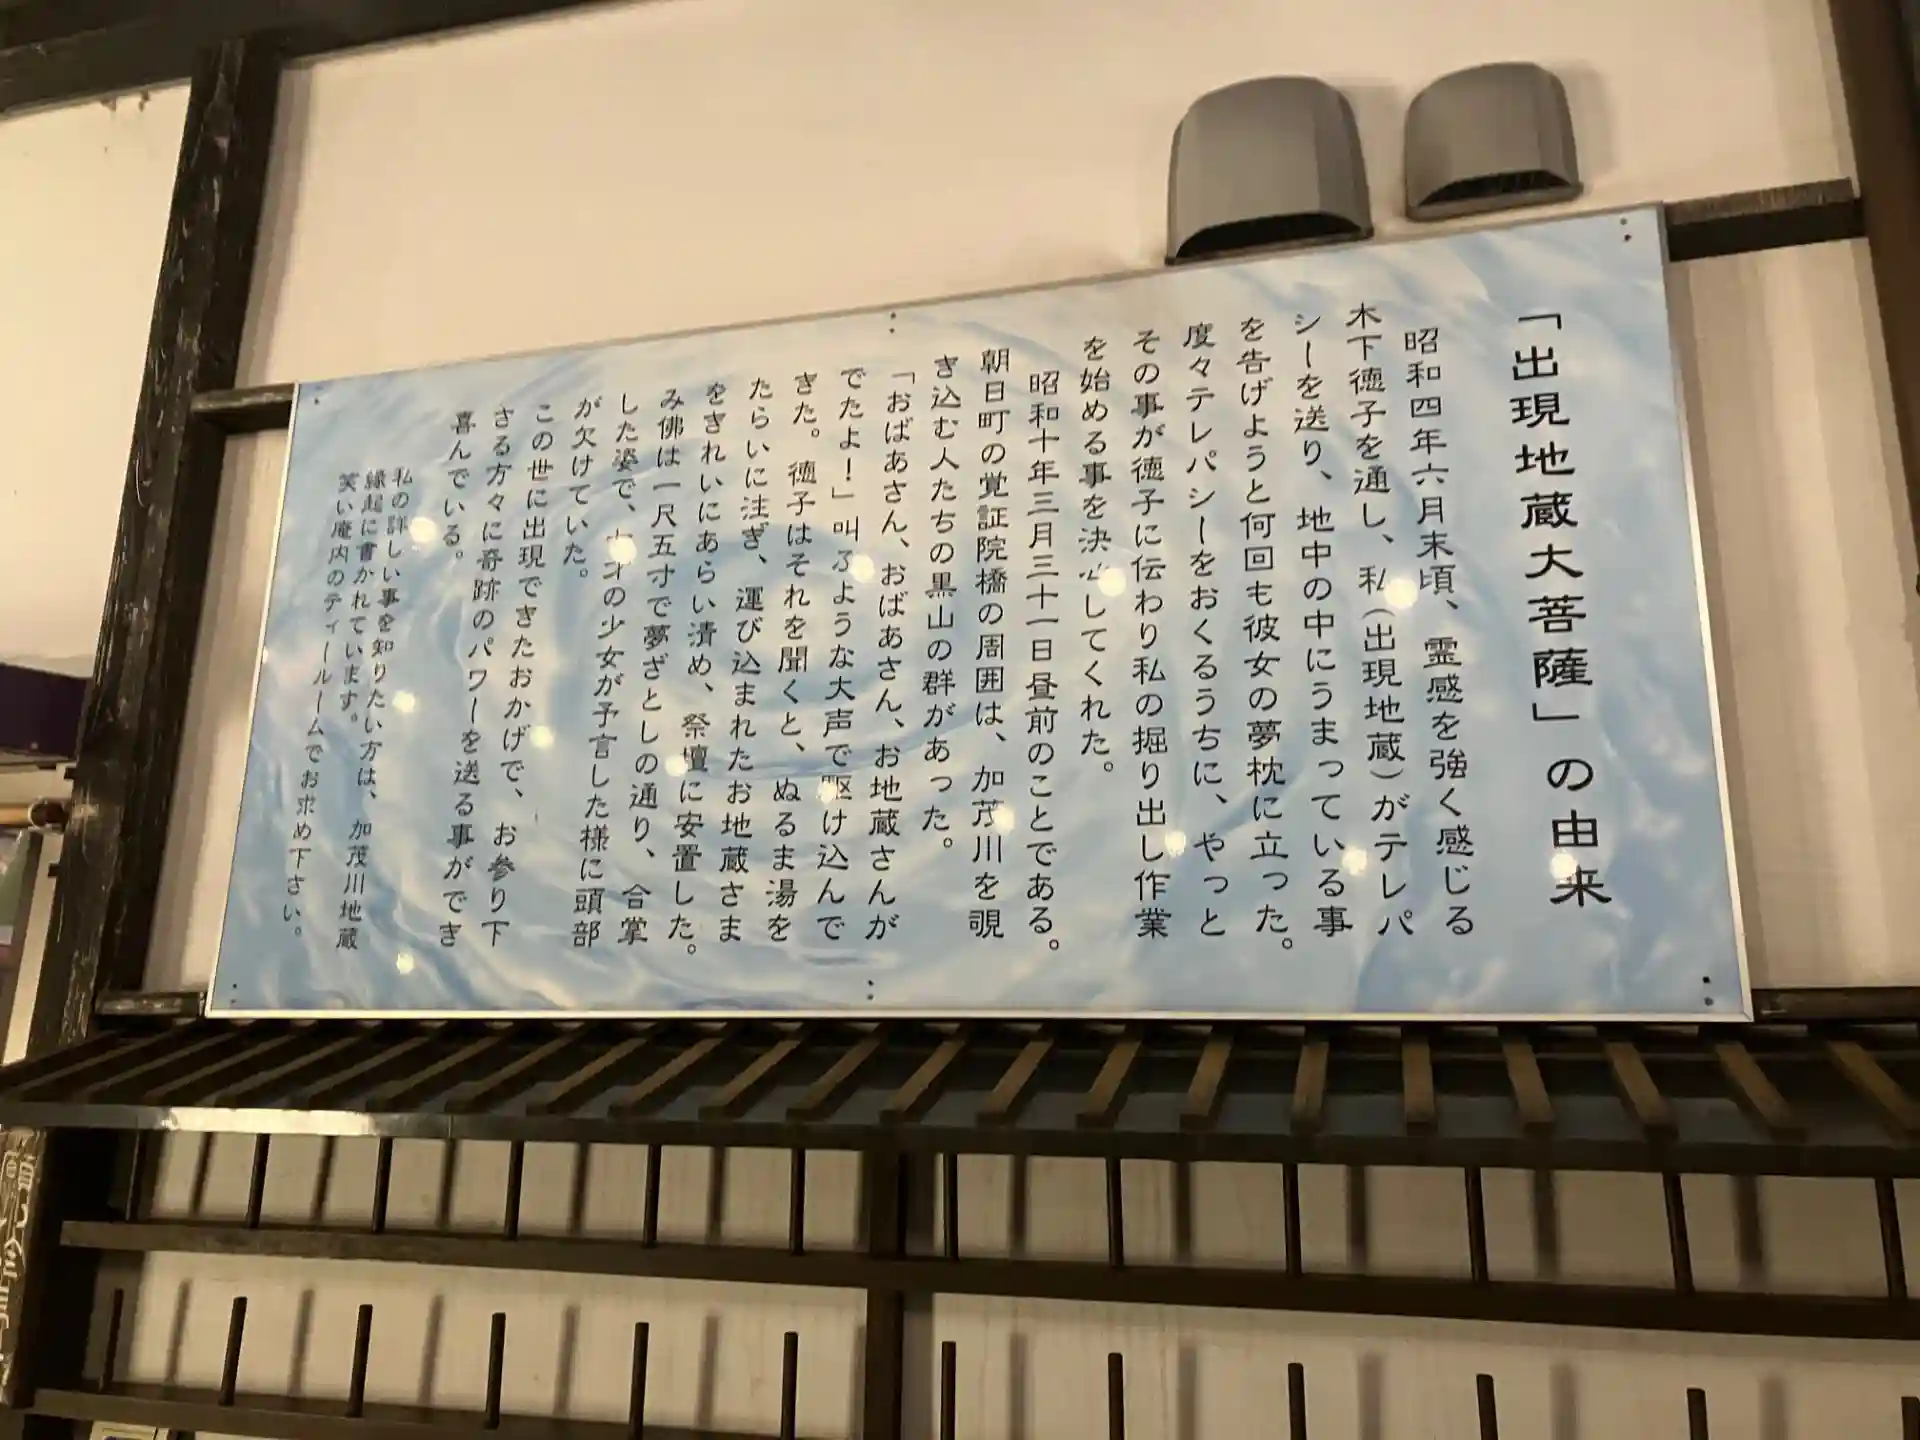 「出現地蔵大菩薩」の由来
昭和四年六月末頃、霊感を強く感じる
木下徳子を通し、私(出現地蔵)がテレパ
シーを送り、地中の中にうまっている事
を告げようと何回も彼女の夢枕に立った。
度々テレパシーをおくるうちに、やっと
その事が徳子に伝わり私の掘り出し作業
を始める事を決心してくれた。
昭和十年三月三十一日昼前のことである。
朝日町の覚証院橋の周囲は、加茂川を覗
き込む人たちの黒山の群があった。
「おばあさん、おばあさん、お地蔵さんが
でたよ!」叫ぶような大声で駆け込んで
きた。徳子はそれを聞くと、ぬるま湯を
たらいに注ぎ、運び込まれたお地蔵さま
をきれいにあらい清め、祭壇に安置した。
み佛は一尺五寸で夢ざとしの通り、合掌
した姿で、才の少女が予言した様に頭部
が欠けていた。
この世に出現できたおかげで、お参り下
さる方々に奇跡のパワーを送る事ができ
喜んでいる。
私の詳しい事を知りたい方は、加茂川地蔵
縁起に書かれています。
笑い庵内のティールームでお求め下さい。